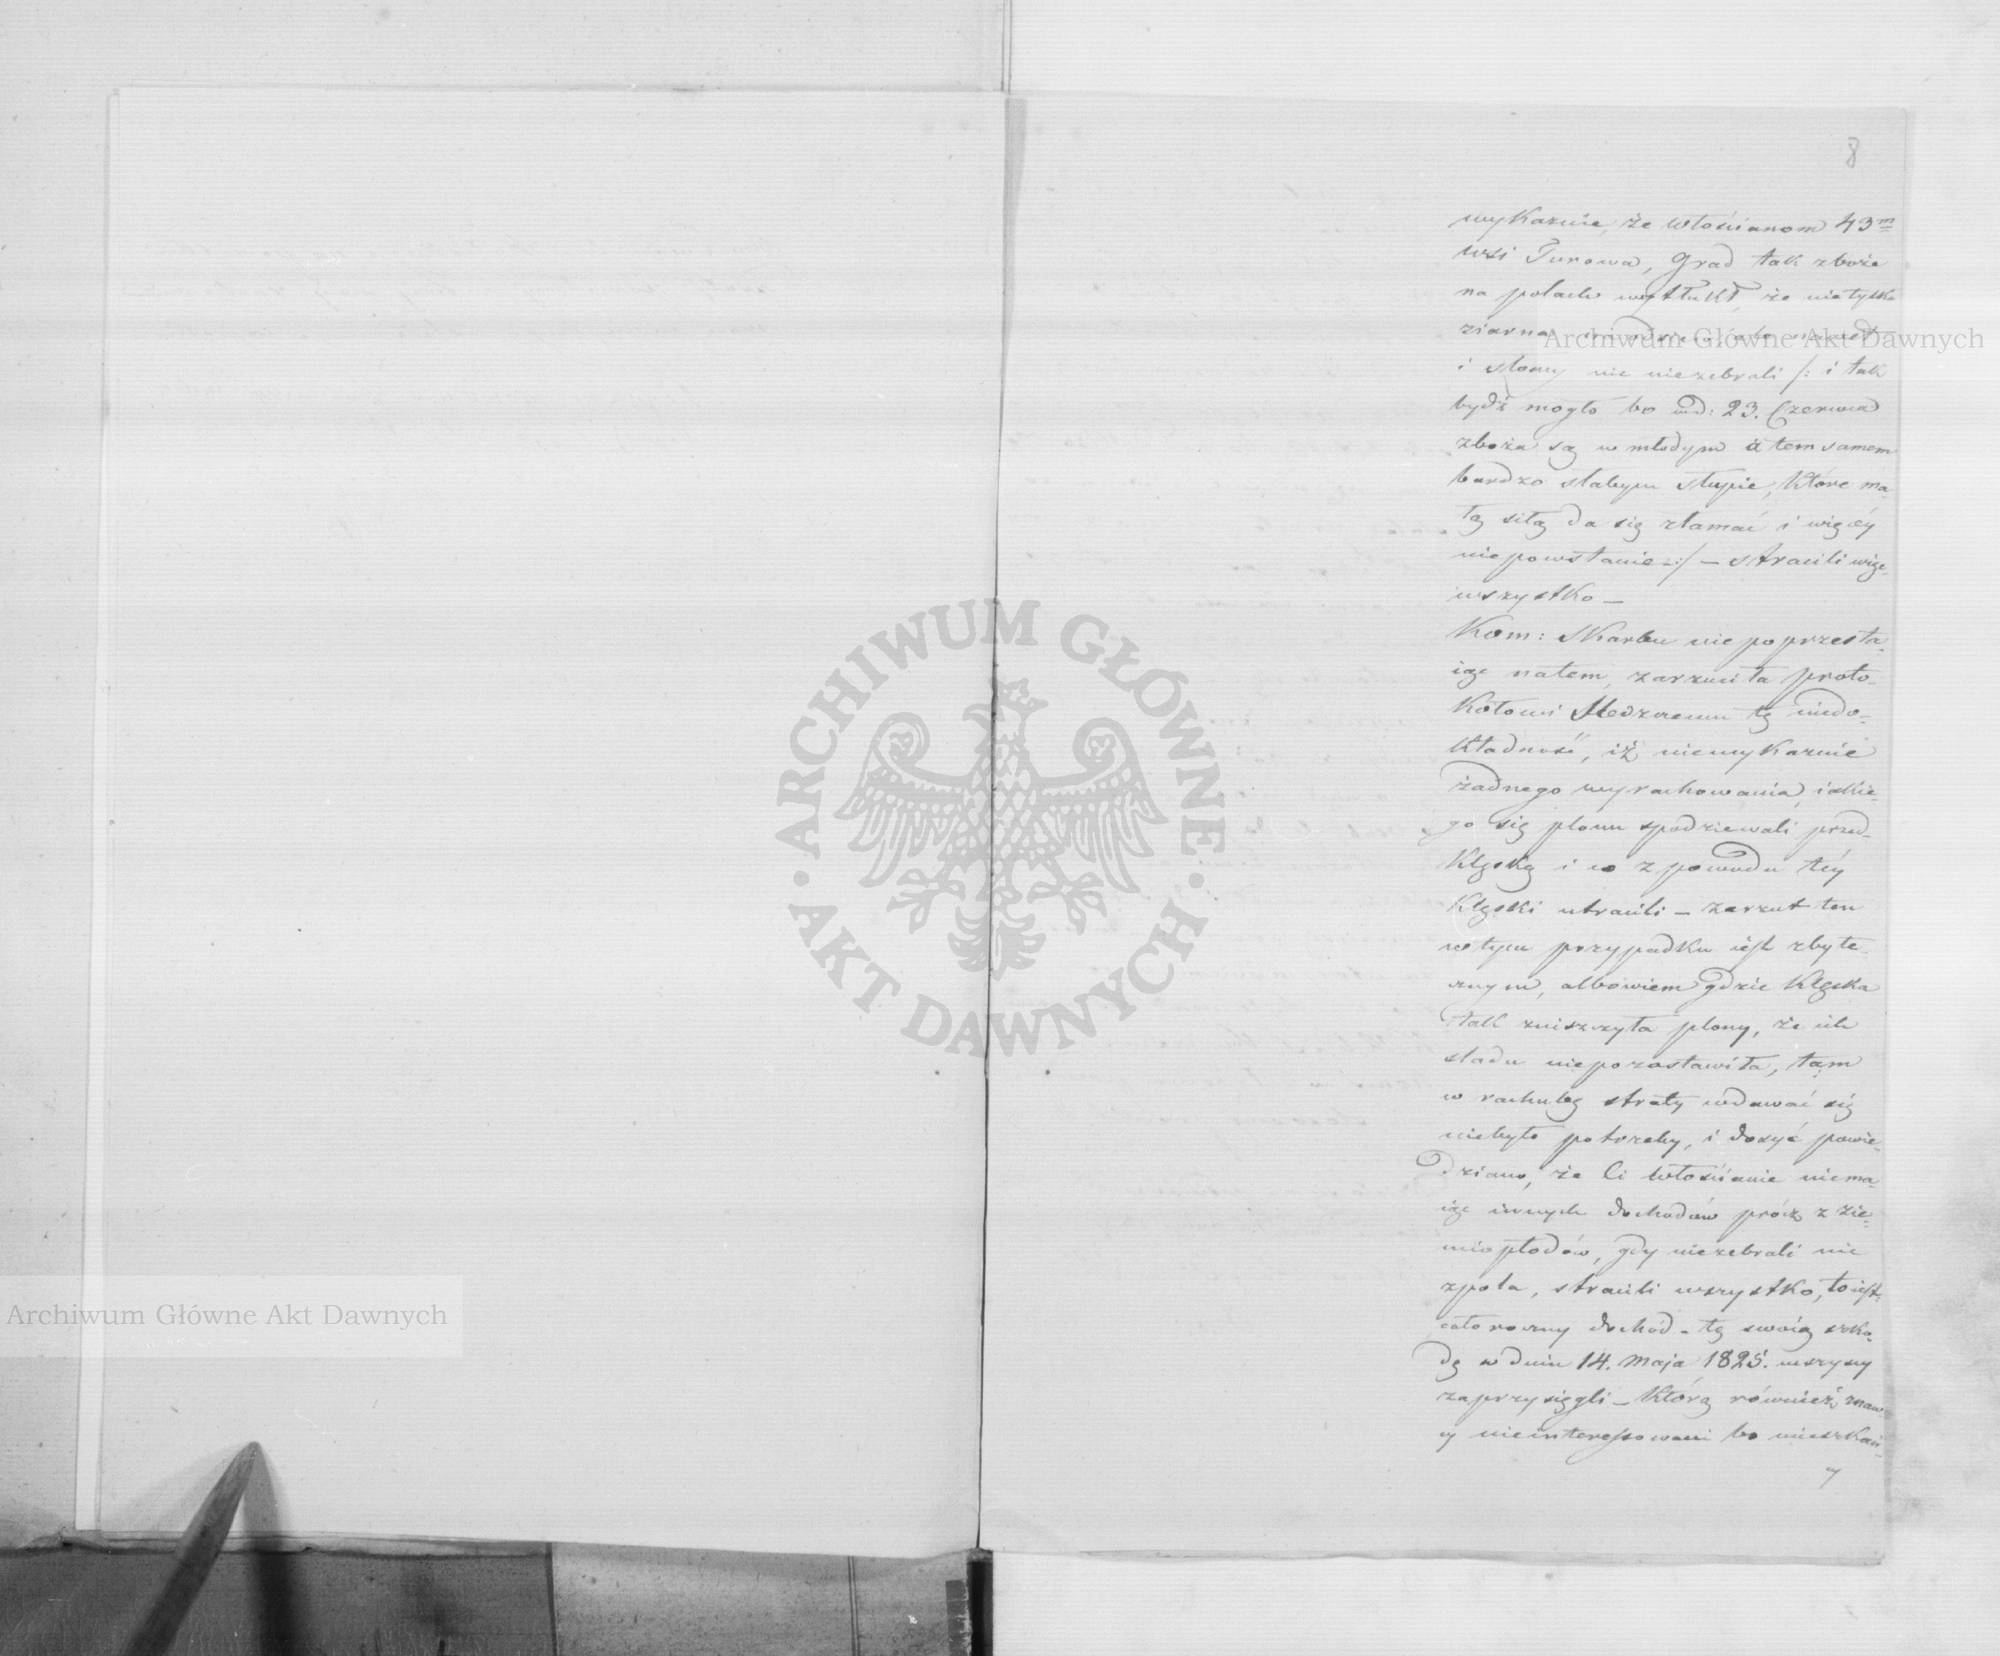 8
wykazuie, że Włościanom 43m
wsi Turowa, Grad tak zboże
na polach wytłukł, że nietylko
ziarna ale nawet
i słomy nic niezebrali /: i tak
bydź mogło bo wd: 23. Czerwca
zboża są w młodym a tem samem
bardzo słabym słupie, które ma-
łą siłą da się złamać i więcéy
niepowstanie :/ – stracili więc
wszystko –
Kom: Skarbu niepoprzesta-
iąc natem, zarzuciła proto-
kołowi Śledczemu tę niedo-
kładność, iż niewykazuie
żadnego wyrachowania, iakie-
go się plonu spodziewali przed
Klęską i co z powodu téy
Klęski utracili – zarzut ten
wtym przypadku iest zbyte-
cznym, albowiem gdzie Klęska
tak zniszczyła plony, że ich
sladu niepozostawiła, tam
w rachubę straty wdawać się
niebyło potrzeby, i dosyć powie-
dziano, że Ci Włościanie niema-
iąc innych dochodów prócz z zie-
miopłodów, gdy niezebrali nic
zpola, stracili wszystko, toiest
całoroczny dochód – tę swoią szko-
dę w dniu 14. Maja 1825. wszyscy
zaprzysięgli – Którą również znaw-
cy nieinteressowani bo mieszkań-
cy
Archiwum Główne Akt Dawnych
Archiwum Główne Akt Dawnych
ARCHIWUM GŁÓWNE
AKT DAWNYCH